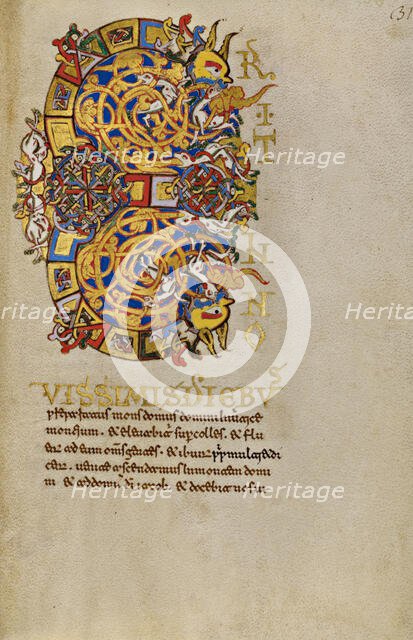 (31
E
R
IT
I
N
NO
VISSIMIS DIEBVS
mons domus domini in
montium . & eleuabit sup colles . & flu
ent ad eum oms gentes . & ibunt ppli multi & di
cent . uenite ascendamus in montem domi
ni & ad domum di iacob . & docebit nos
Heritage
Heritage
Heritage
Heritage
Heritage
Heritage
Heritage
Heritage